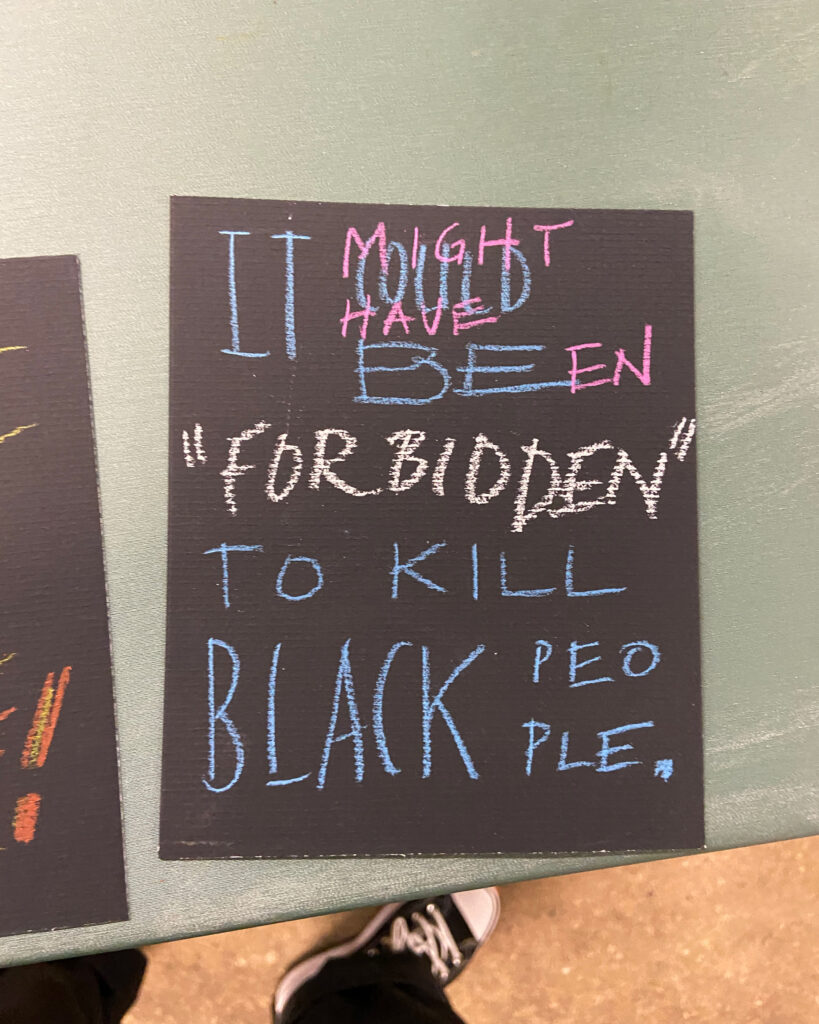 IT MIGHT
COULD
HAVE
BEEN
"FORBIDDEN"
TO KILL
BLACK PEO
PLE.